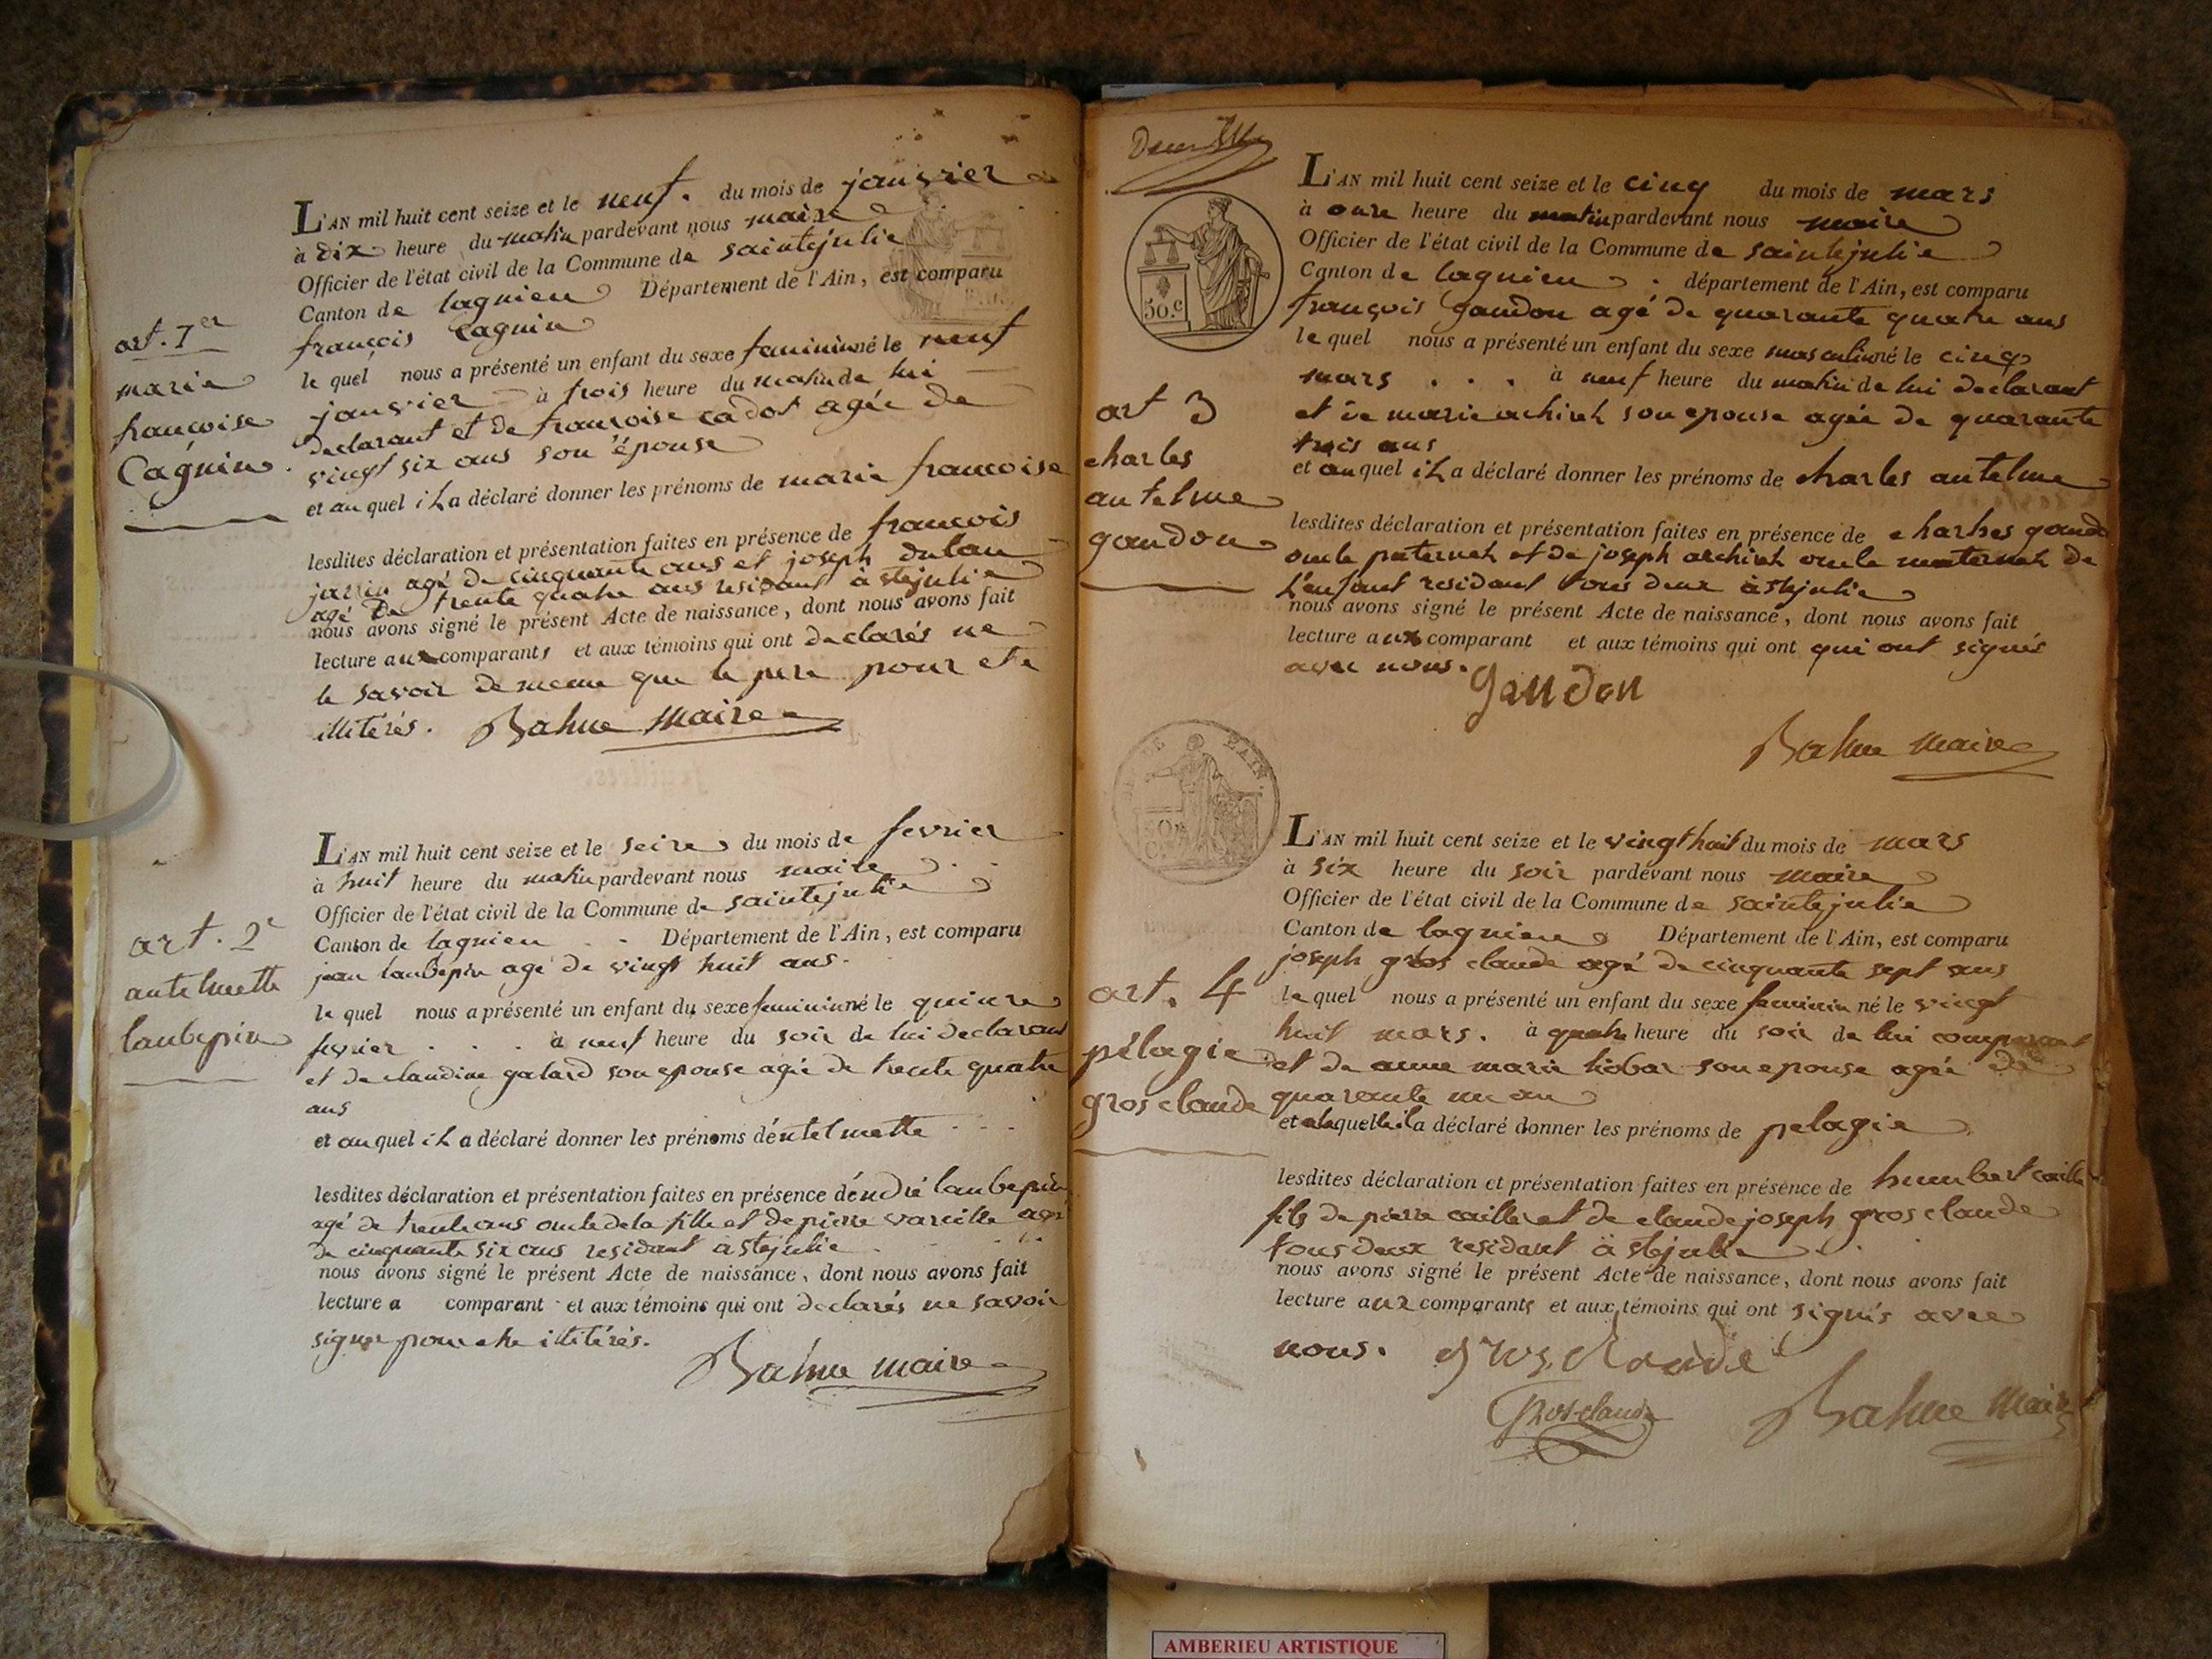 art. 1er
marie
francoise
Cagnin
L'AN mil huit cent seize et le neuf. du mois de janvier
à dix heure du matin pardevant nous maire
Officier de l'état civil de la Commune de saintejulie
Canton de lagnieu Département de l'Ain, est comparu
françois Cagnin
le quel nous a présenté un enfant du sexe feminin né le neuf
janvier à trois heure du matin de lui
declarant et de francoise cadot agée de
vingt six ans son épouse
et au quel il a déclaré donner les prénoms de marie francoise
lesdites déclaration et présentation faites en présence de francois
agé de cinquante ans et joseph
agé de trente quatre ans residant à stejulie
nous avons signé le présent Acte de naissance, dont nous avons fait
lecture aux comparants et aux témoins qui ont declarés ne
le savoir de meme que le pere pour ete
illitérés. Bahue Maire
art. 2e
antelmette
laubepin
L'AN mil huit cent seize et le seize du mois de fevrier
à huit heure du matin pardevant nous maire
Officier de l'état civil de la Commune de saintejulie
Canton de lagnieu Département de l'Ain, est comparu
jean laubepin agé de vingt huit ans.
le quel nous a présenté un enfant du sexe feminin né le quinze
fevrier . . . à neuf heure du soir de lui declarant
et de claudine galard son epouse agée de trente quatre
ans
et au quel il a déclaré donner les prénoms d'entelmette
lesdites déclaration et présentation faites en présence d'endré laubepin
agé de trente ans oncle de la fille et de pierre varcille agé
de cinquante six ans residant a stejulie
nous avons signé le présent Acte de naissance, dont nous avons fait
lecture a comparant et aux témoins qui ont declarés ne savoir
signer pour ete illitérés.
Bahue maire
50.c
L'AN mil huit cent seize et le cinq du mois de mars
à onze heure du matin pardevant nous maire
Officier de l'état civil de la Commune de saintejulie
Canton de lagnieu . département de l'Ain, est comparu
françois gaudon agé de quarante quatre ans
le quel nous a présenté un enfant du sexe masculin né le cinq
mars . . . à neuf heure du matin de lui declarant
et de marie achiet son epouse agée de quarante
trois ans
art 3
charles
antelme
gaudon
et au quel il a déclaré donner les prénoms de charles antelme
lesdites déclaration et présentation faites en présence de charles gaudon
oncle paternel et de joseph archiet oncle maternel de
l'enfant residant tous deux à stejulie
nous avons signé le présent Acte de naissance, dont nous avons fait
lecture aux comparant et aux témoins qui ont qui ont signés
avec nous.
gaudon
Bahue maire
L'AN mil huit cent seize et le vingt huit du mois de mars
à six heure du soir pardevant nous maire
Officier de l'état civil de la Commune de saintejulie
Canton de lagnieu Département de l'Ain, est comparu
joseph gros claude agé de cinquante sept ans
le quel nous a présenté un enfant du sexe feminin né le vingt
huit mars. à quatre heure du soir de lui comparant
et de anne marie hobar son epouse agée de
quarante un an
art. 4
pélagie
gros claude
et a laquelle il a déclaré donner les prénoms de pelagie
lesdites déclaration et présentation faites en présence de humbert caille
fils de pierre caille et de claude joseph gros claude
tous deux residant à stejulie
nous avons signé le présent Acte de naissance, dont nous avons fait
lecture aux comparants et aux témoins qui ont signés avec
nous. gros claude
Gros-claude Bahue Maire
AMBERIEU ARTISTIQUE